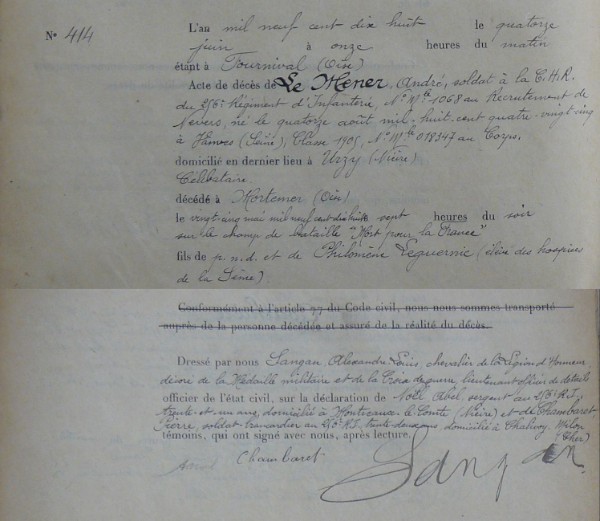 N° 414
L'an mil neuf cent dix huit le quatorze
juin à onze heures du matin
étant à Fournival (Oise)
Acte de décès de Le Mener, André, soldat à la C.H.R.
du 256e Régiment d'Infanterie, N° Mle 1068 au Recrutement de
Nevers, né le quatorze août mil-huit-cent quatre-vingt cinq
à Vanves (Seine), Classe 1905, N° Mle 018347 au Corps.
domicilié en dernier lieu à Urzy (Nièvre)
Célibataire
décédé à Mortemer (Oise)
le vingt-cinq mai mil neuf cent dix huit sept heures du soir
sur le champ de bataille "Mort pour la France"
fils de p.n.d. et de Philomène Leguernic (élève des hospices
de la Seine).
Conformément à l'article 77 du Code civil, nous nous sommes transporté
auprès de la personne décédée et assuré de la réalité du décès.
Dressé par nous Sangan, Alexandre Louis, chevalier de la Légion d'Honneur
décoré de la Médaille militaire et de la Croix de guerre, lieutenant officier de détails
officier de l'état civil, sur la déclaration de Abel, sergent au 256e R.I.
trente et un ans, domicilié à Montceaux-le-Comte (Nièvre) et de Chambaret
Pierre, soldat brancardier au 256e R.I., trente deux ans domicilié à Chalivoy Milon
(Cher)
témoins, qui ont signé avec nous, après lecture.
Chambaret
Sangan